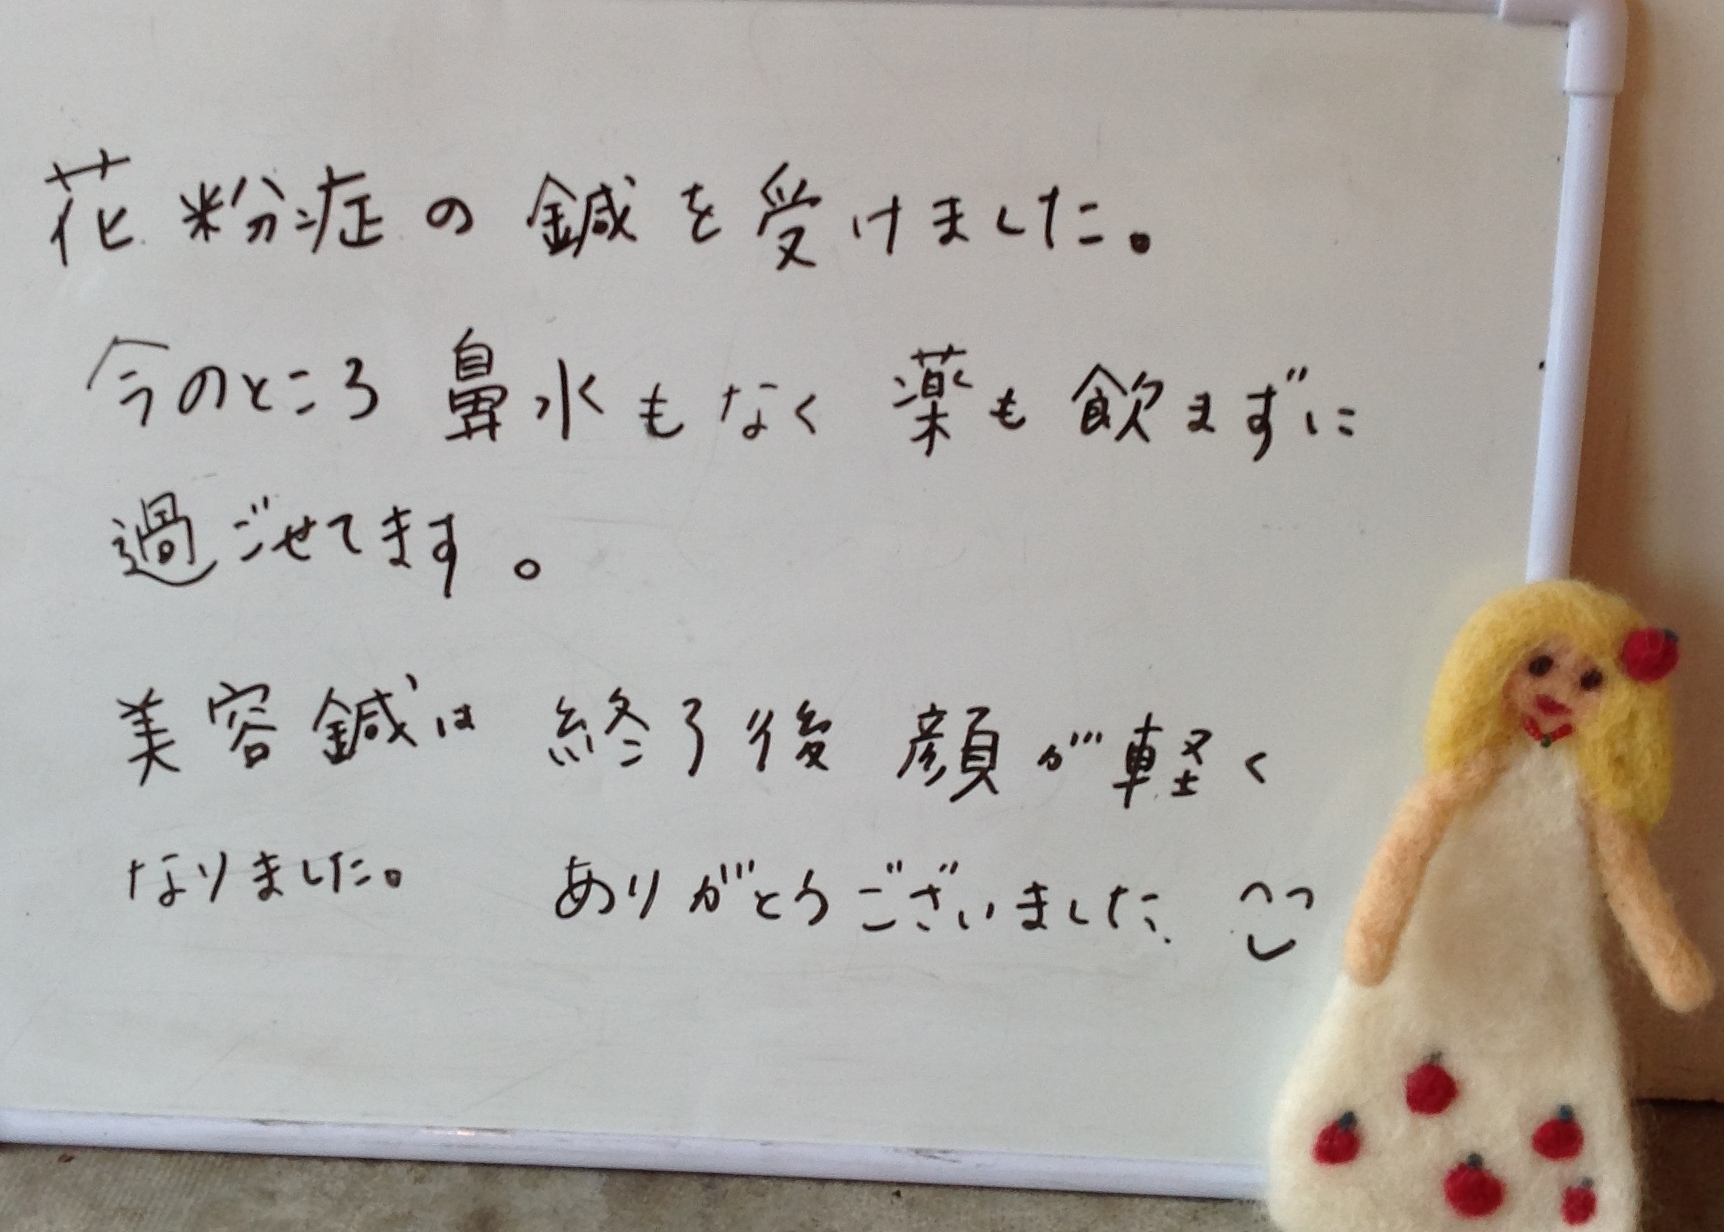 花粉症の鍼を受けました。
今のところ鼻水もなく薬も飲まずに
過ごせてます。
美容鍼は終了後顔が軽く
なりました。ありがとうございました